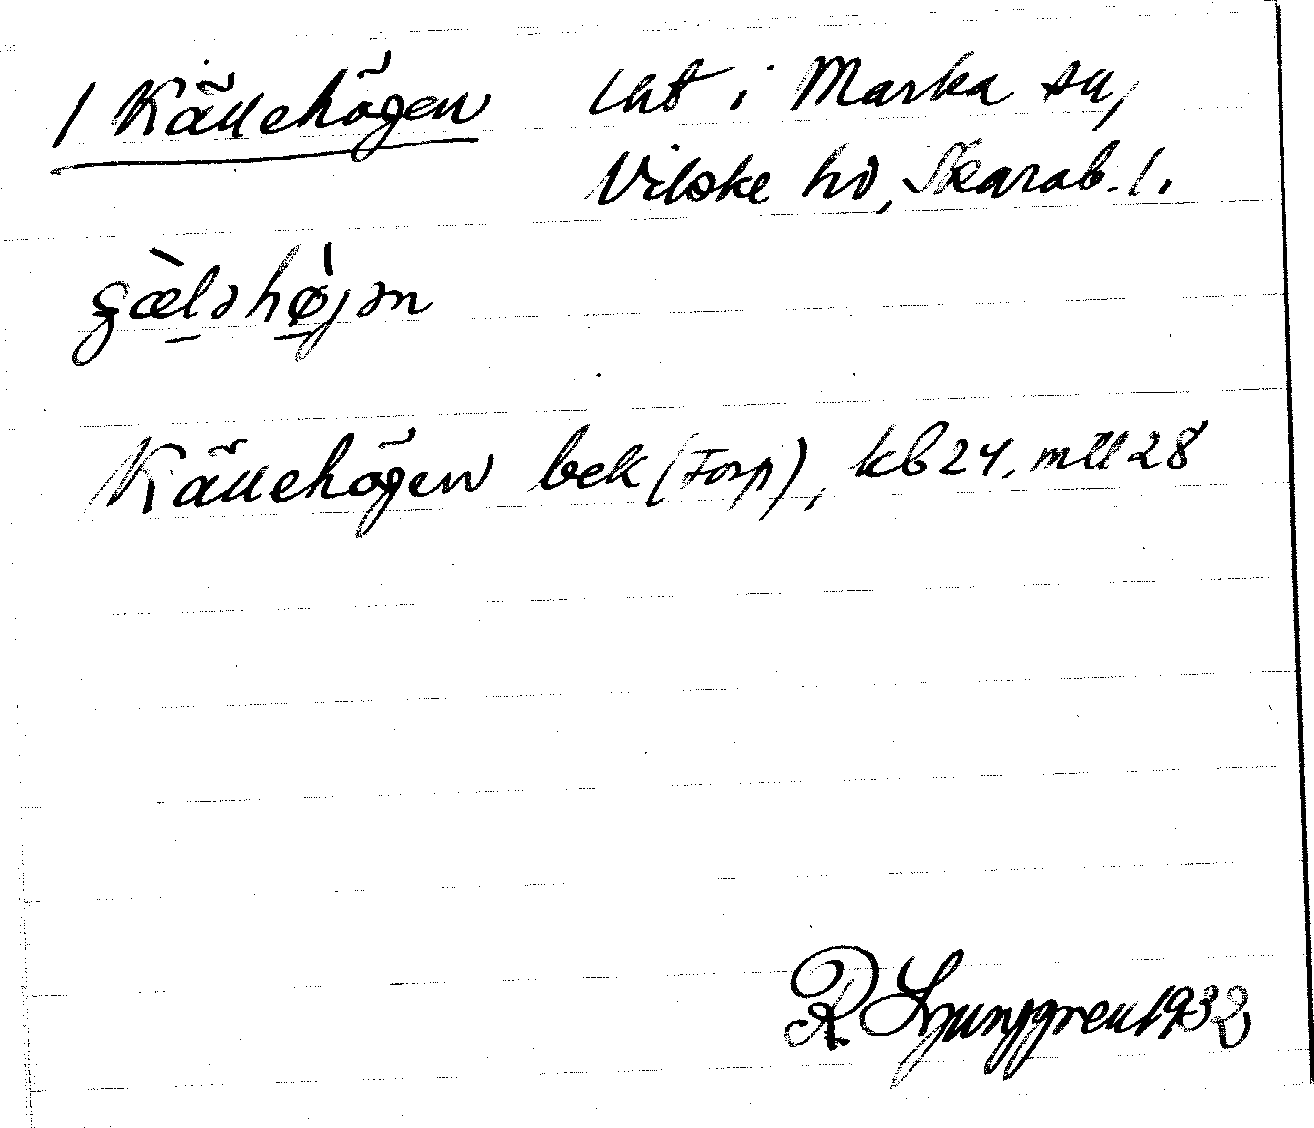 / Källehögen lht i Marka sn,
Vilske hd, Skarab. l.
gæ̀ləhø̀jən
Källehögen bek (Torp), kb 24, mtl 28
R Ljunggren 1932